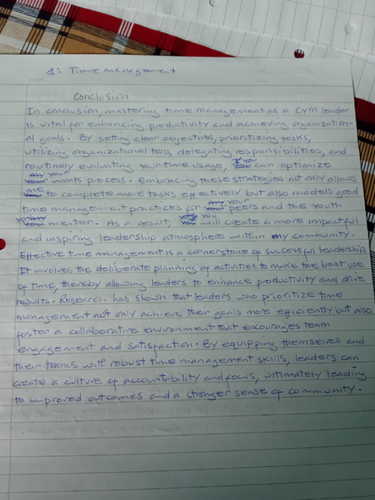 1: Time management
Conclusion
In conclusion, mastering time management as a CYM leader
is vital for enhancing productivity and achieving organization-
al goals. By setting clear objectives, prioritizing tasks,
utilizing organizational tools, delegating responsibilities, and
routinely evaluating your time usage, you can optimize
any work process. Embracing these strategies not only allows
me to complete more tasks effectively but also models good
time management practices for peers and the youth
mentor. As a result, you will create a more impactful
and inspiring leadership atmosphere within my community.
Effective time management is a cornerstone of successful leadership.
It involves the deliberate planning of activities to make the best use
of time, thereby allowing leaders to enhance productivity and drive
results. Research has shown that leaders who prioritize time
management not only achieve their goals more efficiently but also
foster a collaborative environment that encourages team
engagement and satisfaction. By equipping themselves and
their teams with robust time management skills, leaders can
create a culture of accountability and focus, ultimately leading
to improved outcomes and a stronger sense of community.